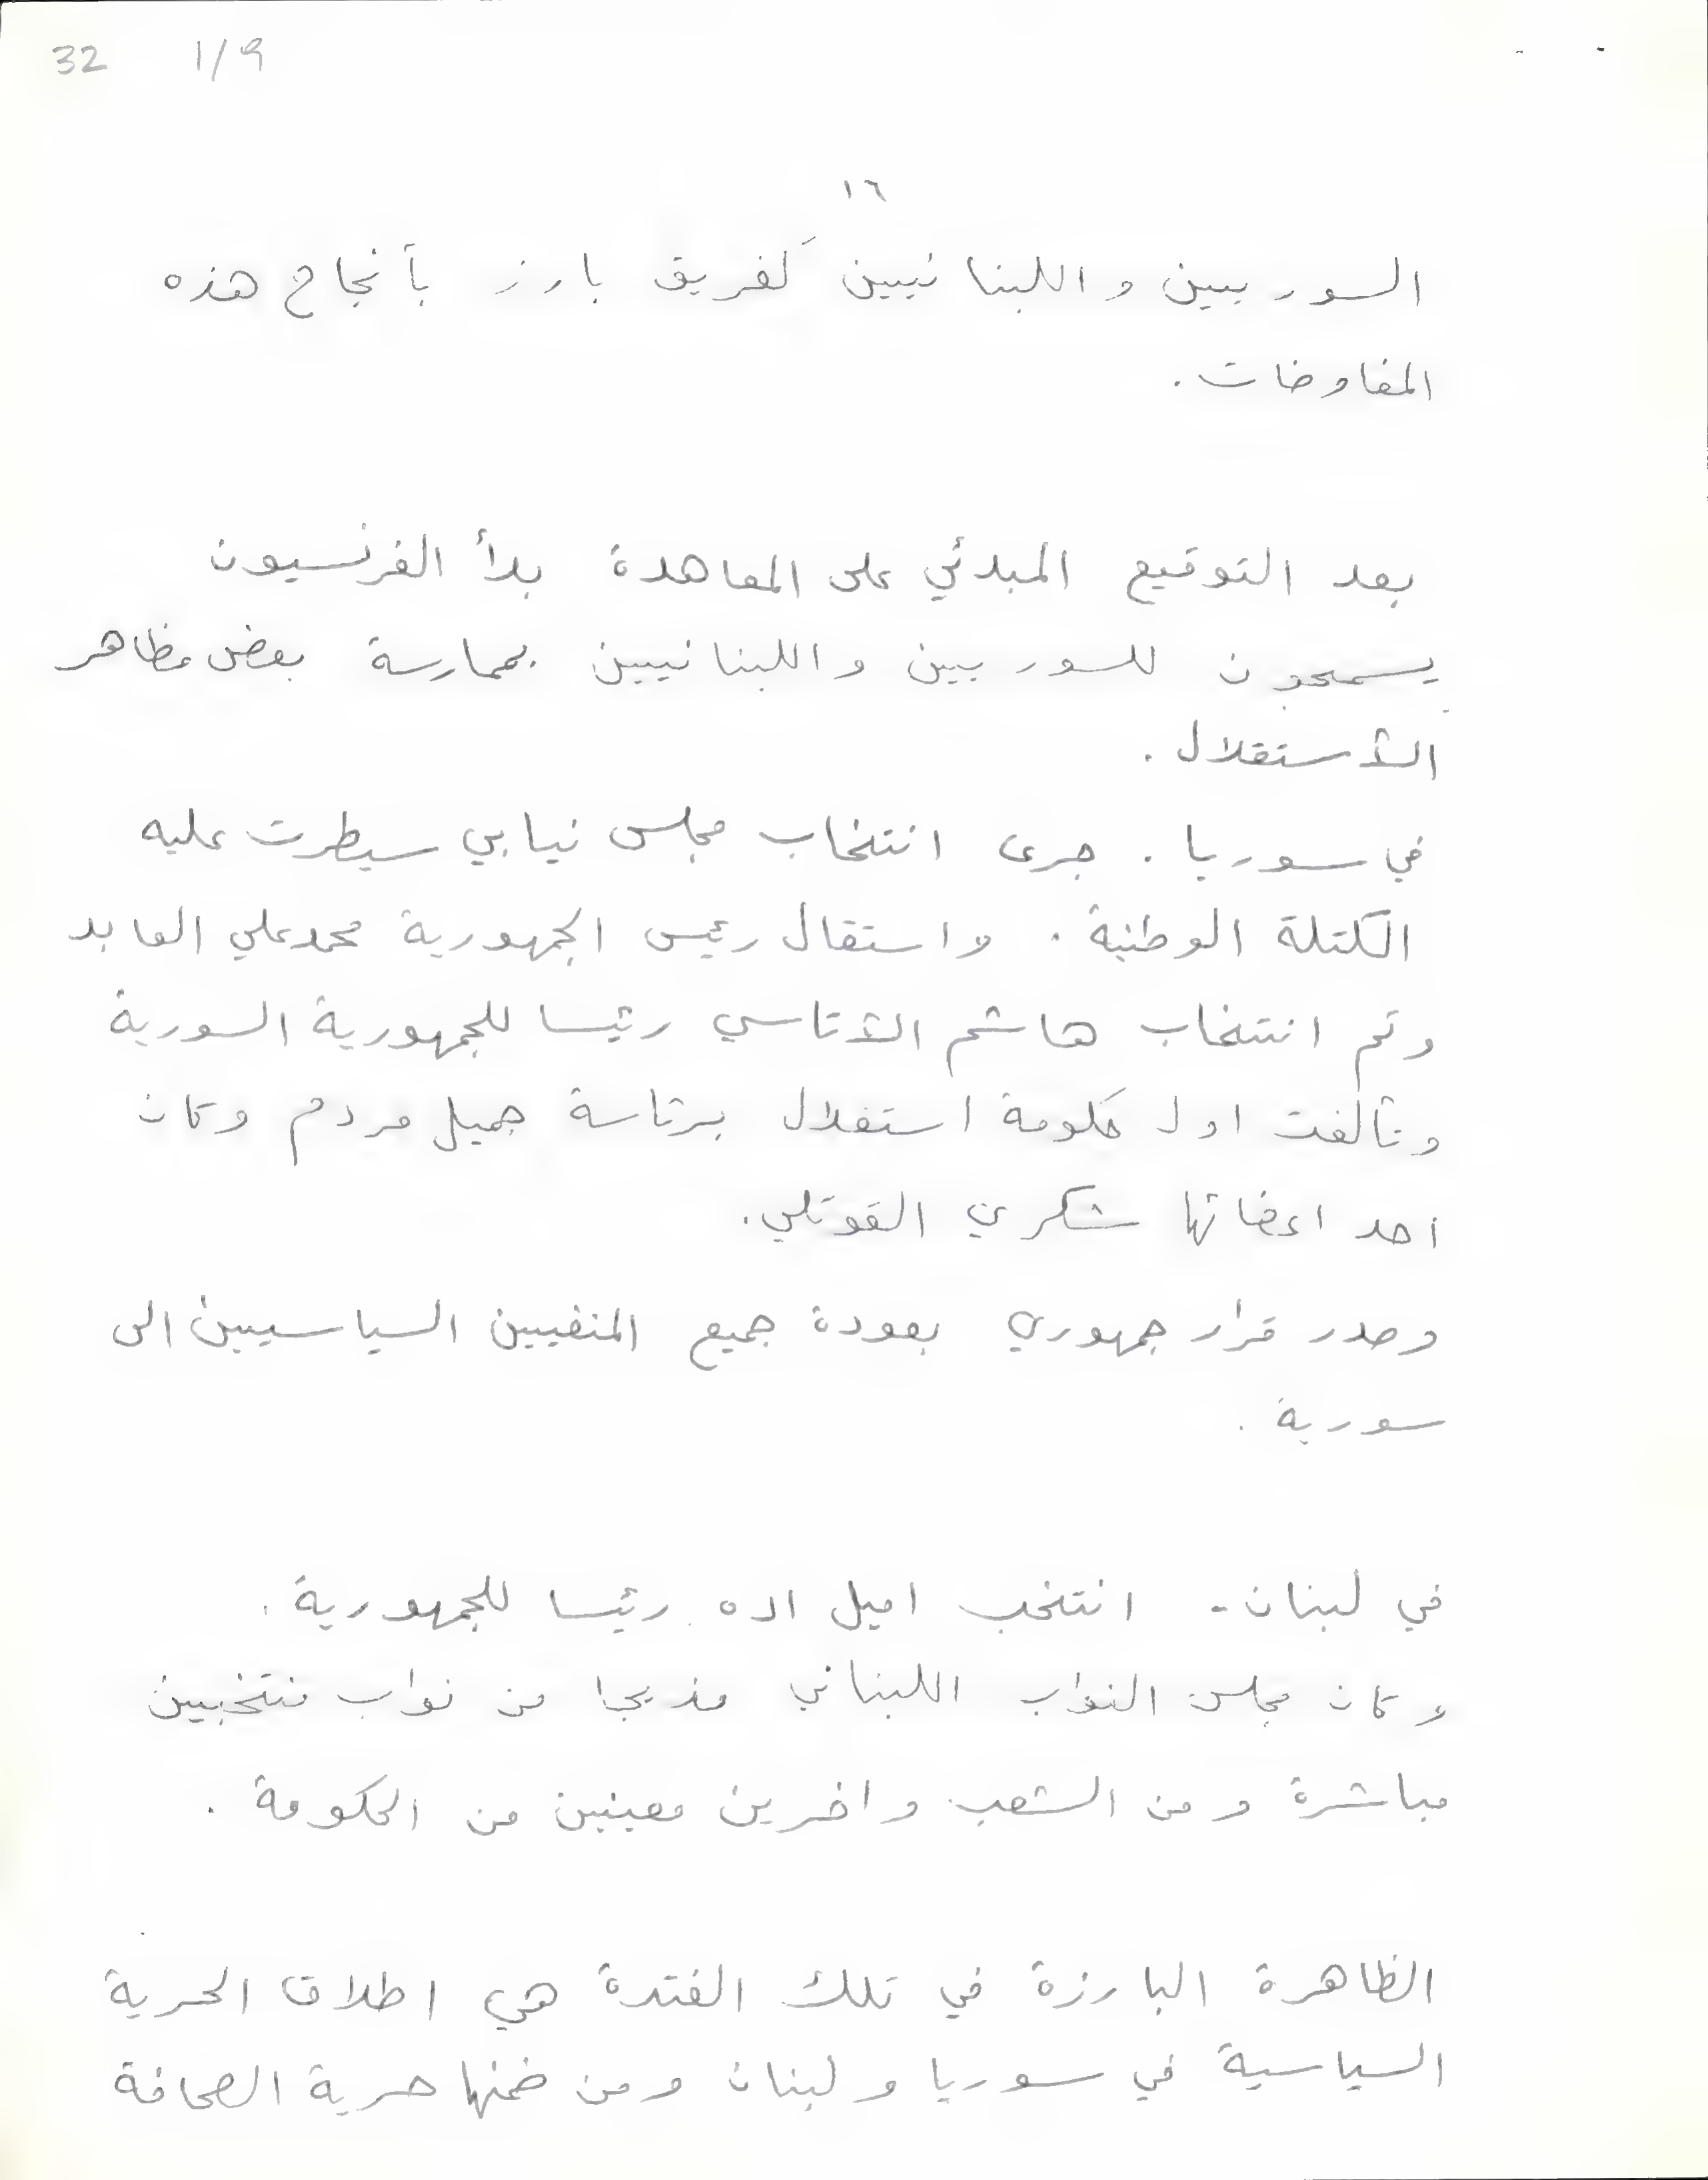 32 1/9
١٦
السوريين واللبنانيين كفريق بارز بأنجاح هذه
المفاوضات.
بعد التوقيع المبدئي على المعاهدة بدأ الفرنسيون
يسمحون للسوريين واللبنانيين بممارسة بعض مظاهر
الأستقلال.
في سوريا. جرى انتخاب مجلس نيابي سيطرت عليه
الكتلة الوطنية. واستقال رئيس الجمهورية محمد علي العابد
وتم انتخاب هاشم الأتاسي رئيسا للجمهورية السورية
وتألفت اول حكومة استقلال برئاسة جميل مردم وكان
احد اعضائها شكري القوتلي.
وصدر قرار جمهوري بعودة جميع المنفيين السياسيين الى
سورية.
في لبنان- انتخب اميل اده رئيسا للجمهورية.
وكان مجلس النواب اللبناني مذيجا من نواب منتخبين
مباشرة ومن الشعب واخرين معينين من الحكومة.
الظاهرة البارزة في تلك الفترة هي اطلاق الحرية
السياسية في سوريا ولبنان ومن ضمنها حرية الصحافة